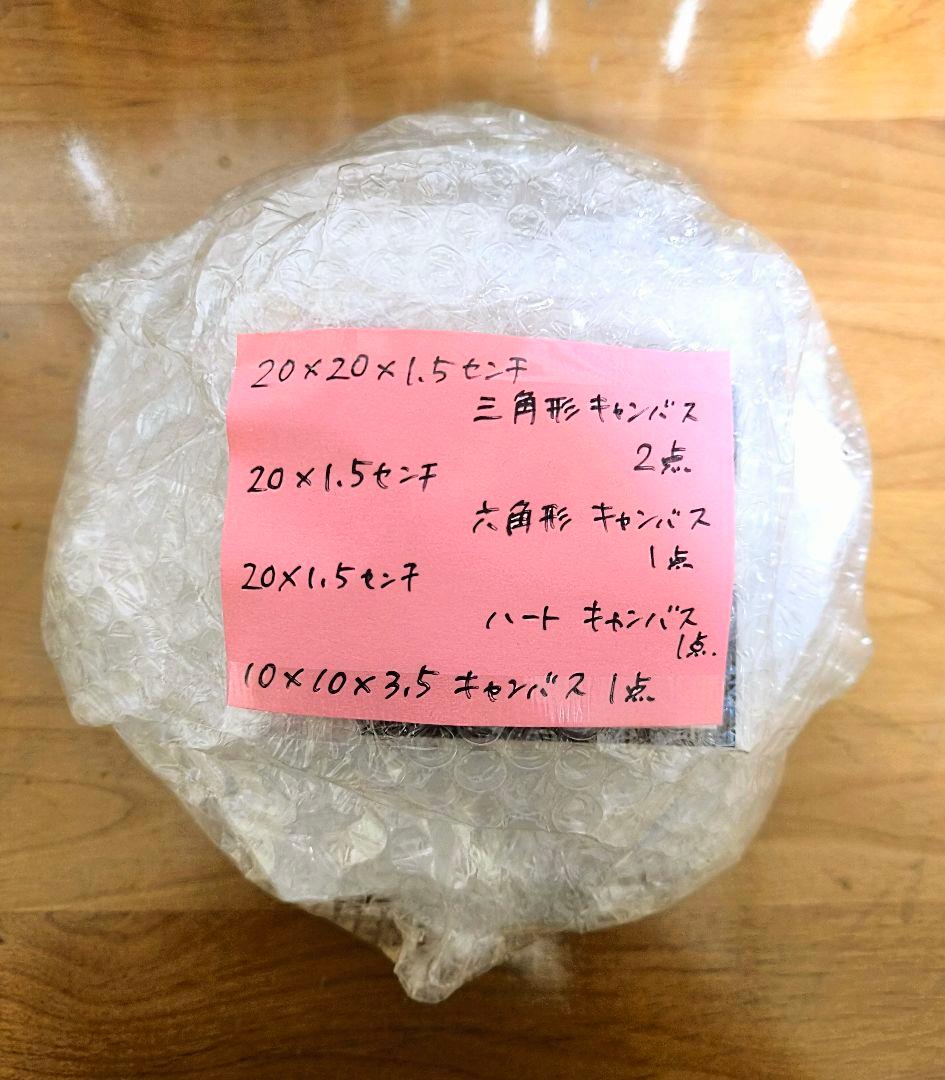 20×20×1.5センチ
三角形キャンバス
2点
20×1.5センチ
六角形 キャンバス
1点
20×1.5センチ
ハート キャンバス
1点.
10×10×3.5 キャンバス 1点